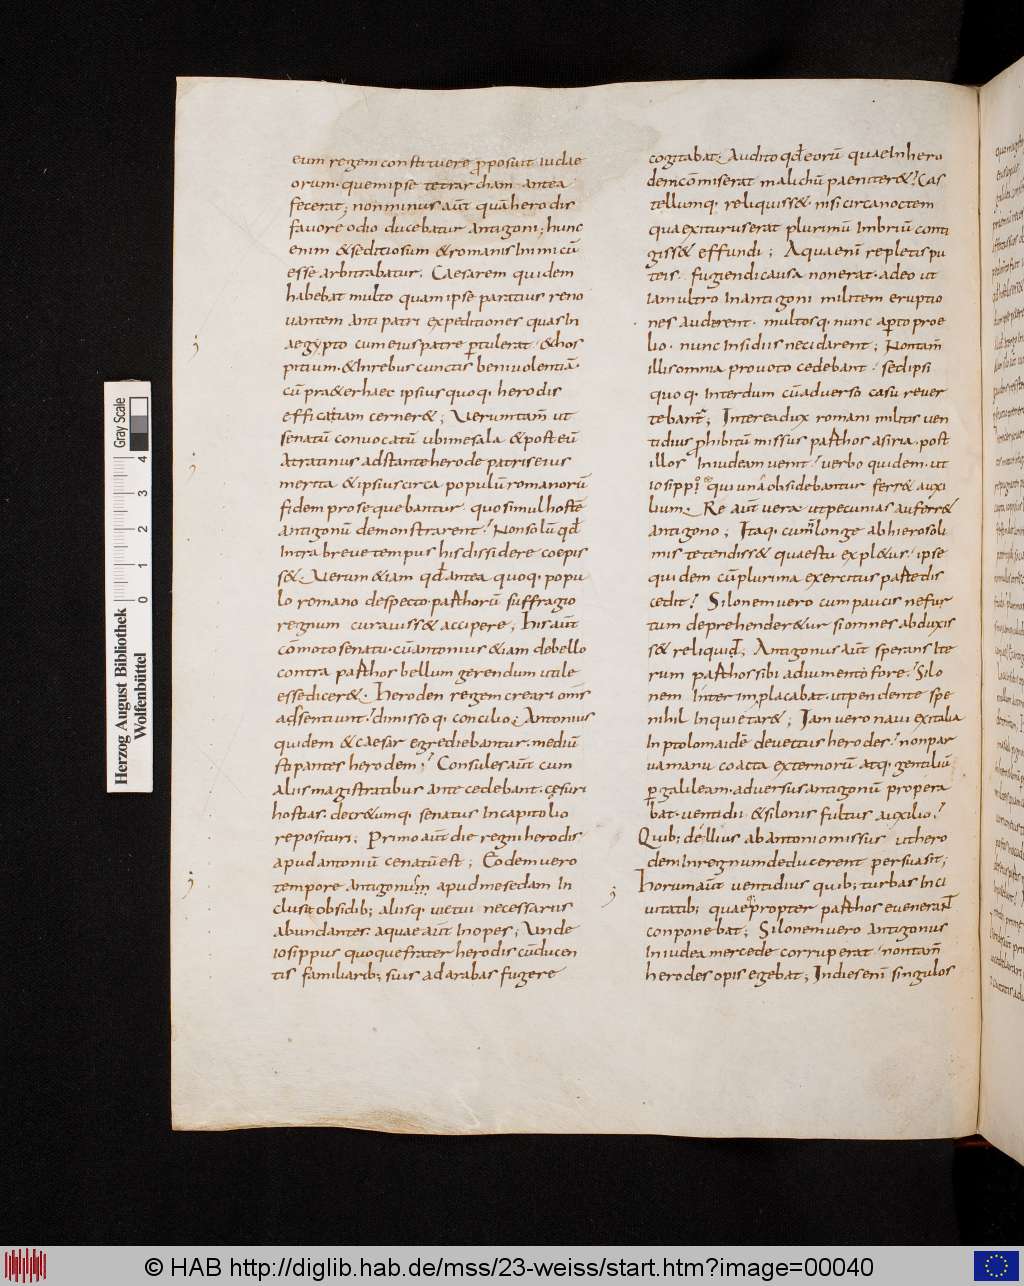 eum regem constituere p̱posuit iudae
orum· quem ipse tetrarcham antea
fecerat; non minus aūt quā herodis
favore odio ducebatur antigoni; hunc
enim & seditiosum & romanis inimicū
esse arbitrabatur; Caesarem quidem
habebat multo quam ipse paratius reno
vantem antipatri expeditiones quas in
aegypto cum eius patre p̱tulerat· & hos
pitium· & in rebus cunctis benivolentiā·
cū pra&er haec ipsius quoq· herodis
efficatiam cerner&; Veruntam̄ ut
senatū convocatū ubi mesala & post eū
atratinus adstante herode patris eius
merita & ipsius circa populū romanorū
fidem prosequebantur quo simul hostē
antigonū demonstrarent· Non solū qđ
intra breve tempus his dissidere coepis
s& Verum &iam qđ antea quoq· popu
lo romano despecto parthorū suffragio
regnum curaviss& accipere; His aūt
comoto senatu· cū antonius &iam de bello
contra parthos bellum gerendum utile
esse dicer&· Heroden regem creari om̄s
adsentiunt· dimissoq· concilio; Antonius
quidem & caesar egrediebantur· mediū
stipantes herodem; Consules aūt cum
aliis magistratibus antecedebant· cesuri
hostias· decr&umq· senatus in capitolio
reposituri; Primo aūt die regni herodis
apud antoniū cenatū est; Eodem vero
tempore antigonus apud mesedam in
clusit obsidib; aliisq· victui necessariis
abundantes· aquae aūt inopes; Unde
iosippus quoque frater herodis cū ducen
tis familiarib; suis ad arabas fugere
cogitabat· Audito qđ eorū quae in hero
dem cōmiserat malichū paeniter&· Cas
tellumq· reliquiss& nisi circa noctem
qua exiturus erat plurimū imbriū conti
giss& effundi; Aqua enī repletis pu
teis· fugiendi causa non erat· adeo ut
iam ultro in antigoni militem eruptio
nes auderent· multosq· nunc ap̱to proe
lio· nunc insidiis neci darent; Non tam̄
illis omnia pro voto cedebant· sed ipsi
quoq· interdum cū adverso casu rever
tebant̄; Interea dux romani militis ven
tidius p̱hibitū missus parthos a siria· post
illos in iudeam venit· verbo quidem· ut
iosippo qui unā obsidebantur ferr& auxi
lium· Re aūt vera ut pecunias auferr&
antigono; Itaq· cum longe ab hierosoli
mis tetendiss& quaestu expl&us· ipse
quidem cū plurima exercitus parte dis
cedit· Silonem vero cum paucis ne fur
tum deprehender&ur si omnes abduxis
s& reliquid; Antigonus aūt sperans ite
rum parthos sibi adiumento fore· Silo
nem interim placabat· ut pendente spe
nihil inquietar&; Iam vero navi ex italia
in ptolomaidē devectus herodes· non par
va manu coacta externorū atq· gentiliū
p̱ galileam· adversus antigonū propera
bat· ventidii & silonis fultus auxilio·
Quib; dellius ab antonio missus ut hero
dem in regnum deducerent persuasit;
Horum aūt ventidius quib; turbas in ci
vitatib; quae propter parthos evenerant̄
conponebat; Silonem vero antigonus
in iudea mercede corruperat· non tam̄
herodes opis egebat; In dies enī singulos
Herzog August Bibliothek
Wolfenbüttel
0 1 2 3 4
Gray Scale
© HAB http://diglib.hab.de/mss/23-weiss/start.htm?image=00040